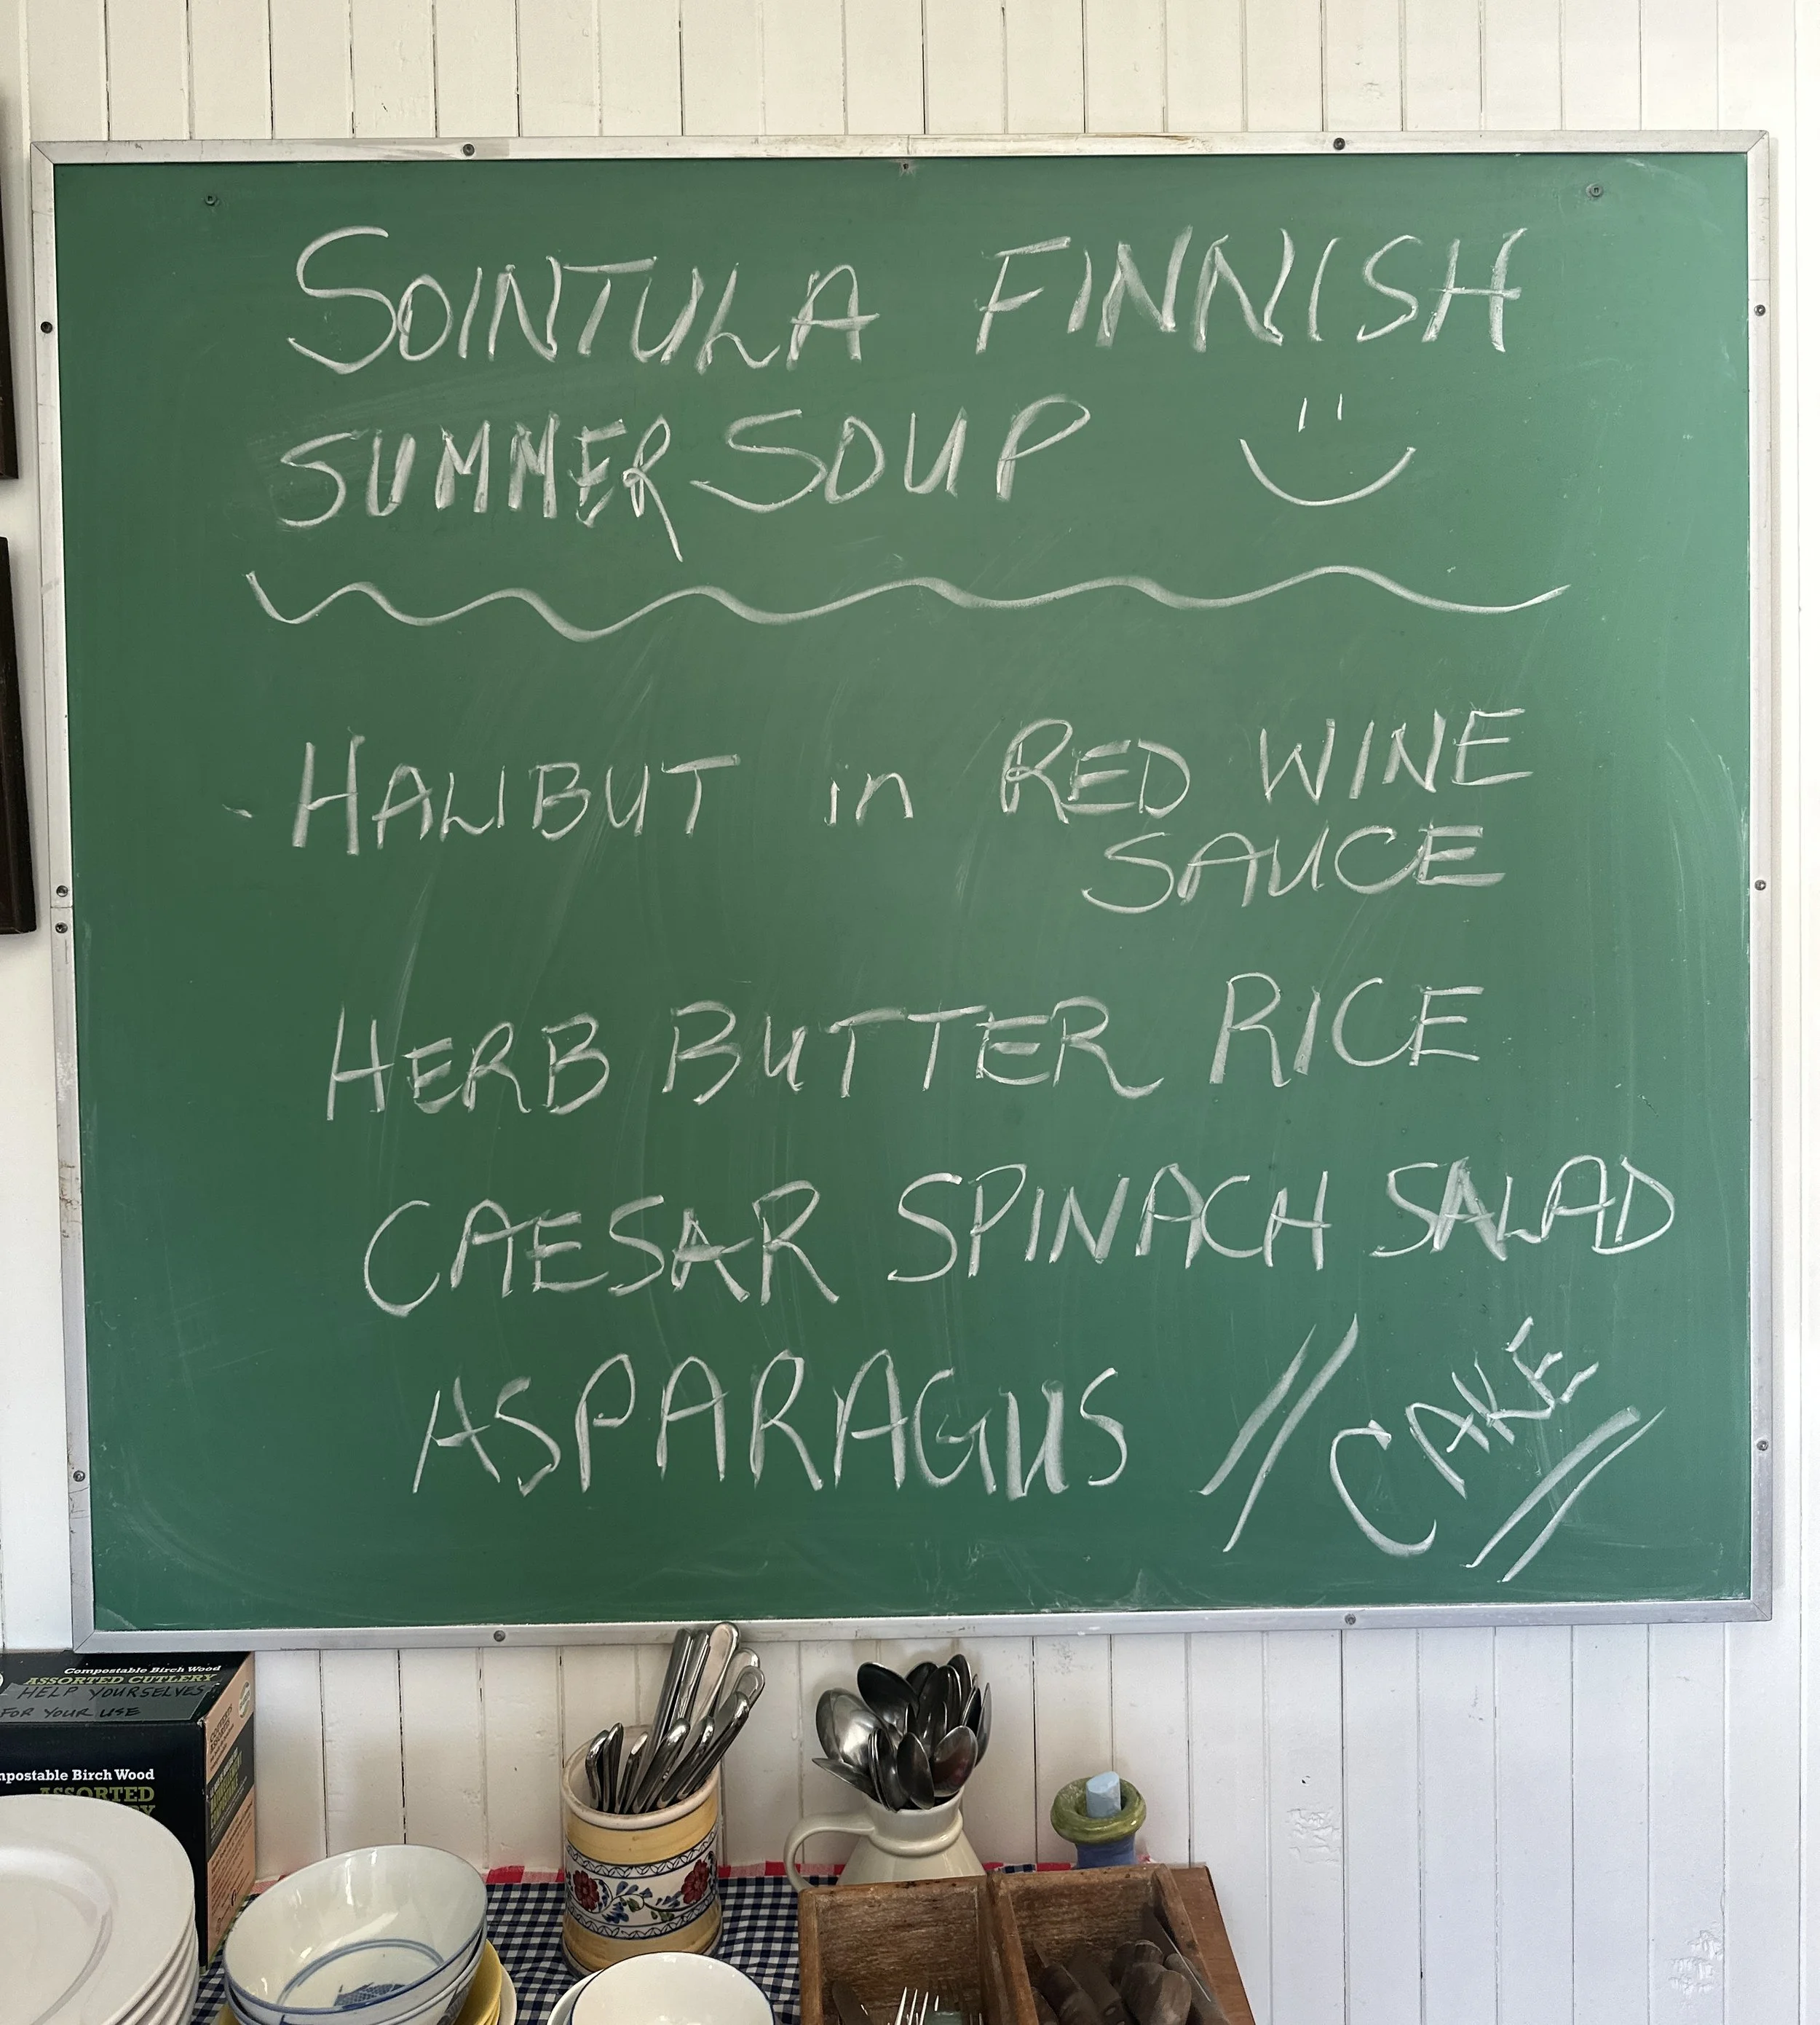 SOINTULA FINNISH
SUMMER SOUP
HALIBUT in RED WINE
SAUCE
HERB BUTTER RICE
CAESAR SPINACH SALAD
ASPARAGUS // CAKE //
Compostable Birch Wood
ASSORTED CUTLERY
HELP YOURSELVES
FOR YOUR USE
mpostable Birch Wood
ASSORTED